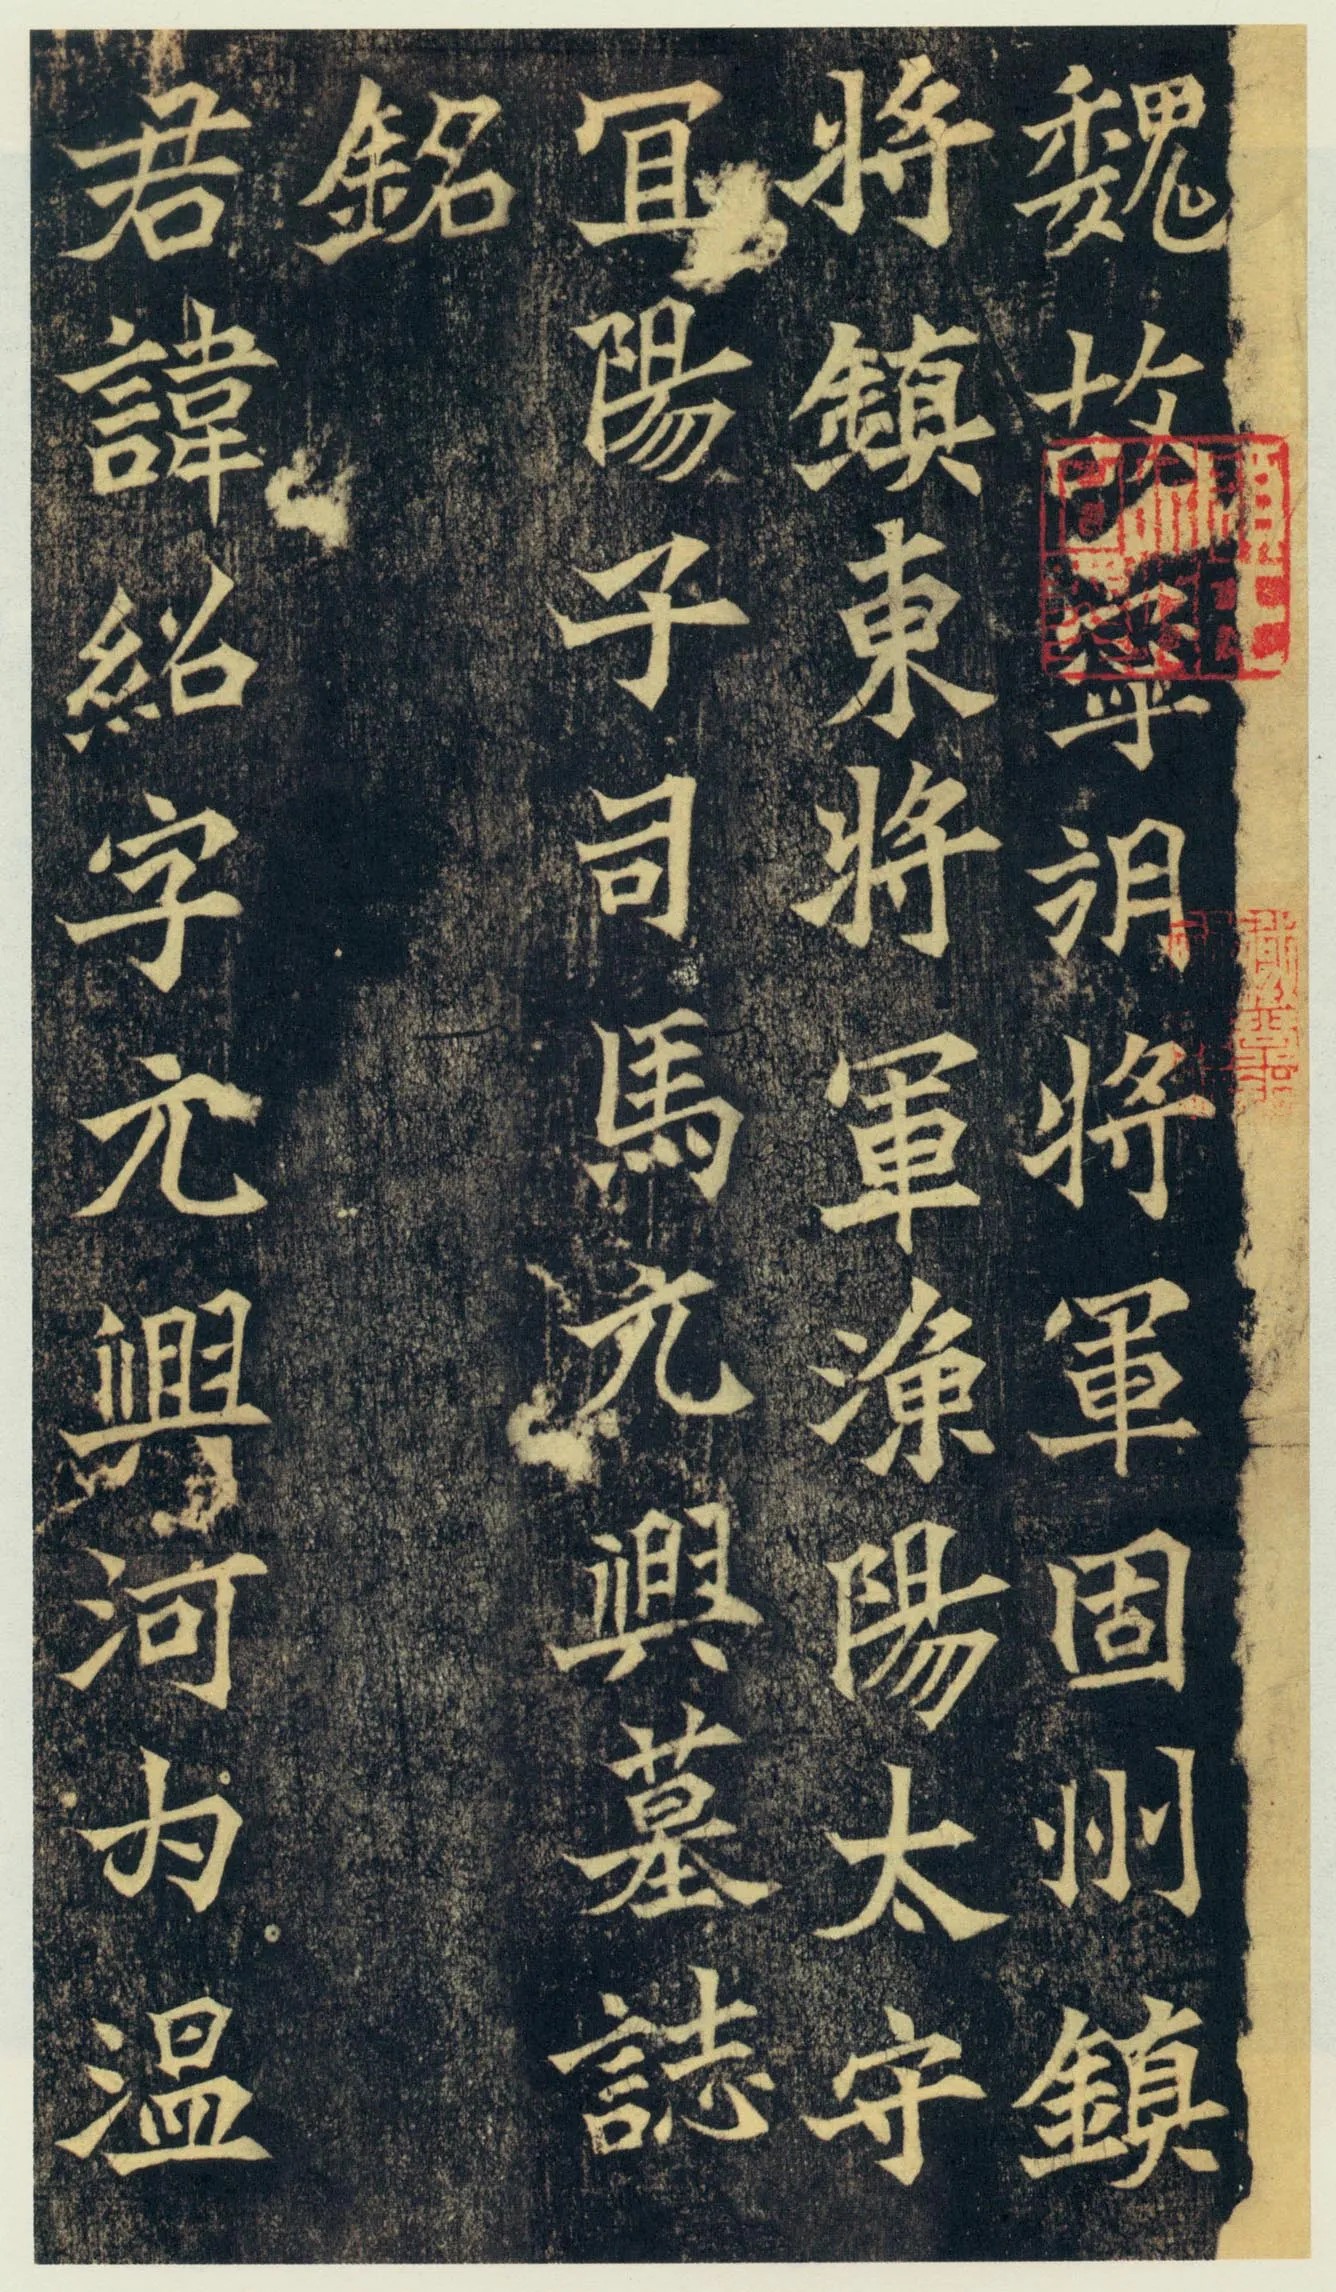 魏故寧朔將軍固州鎮
將鎮東將軍漁陽太守
冝陽子司馬元興墓誌
銘
君諱紹字元興河内温